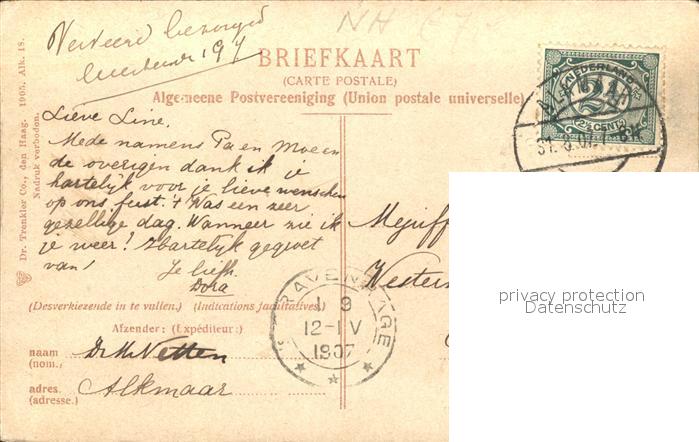 NH
Verkeerd bezorgd
197
BRIEFKAART
(CARTE POSTALE)
Algemeene Postvereeniging (Union postale universelle)
Dr. Trenkler Co., den Haag. 1905. Alk. 18.
Nadruk verboden.
NEDERLAND
2½
2½ CENT
Lieve Line,
Mede namens Pa en Moe en
de overigen dank ik je
hartelijk voor je lieve wenschen
op ons feest. 't Was een zeer
gezellige dag. Wanneer zie ik
je weer? Hartelijk gegroet
van!
Je liefh.
Dora
(Desverkiezende in te vullen.) (Indications facultatives.)
Afzender: (Expéditeur:)
naam
(nom.)
Netten
adres.
(adresse.)
Alkmaar
GRAVENHAGE
1 9
12-1 V
1907
Mejuff
Wester
privacy protection
Datenschutz